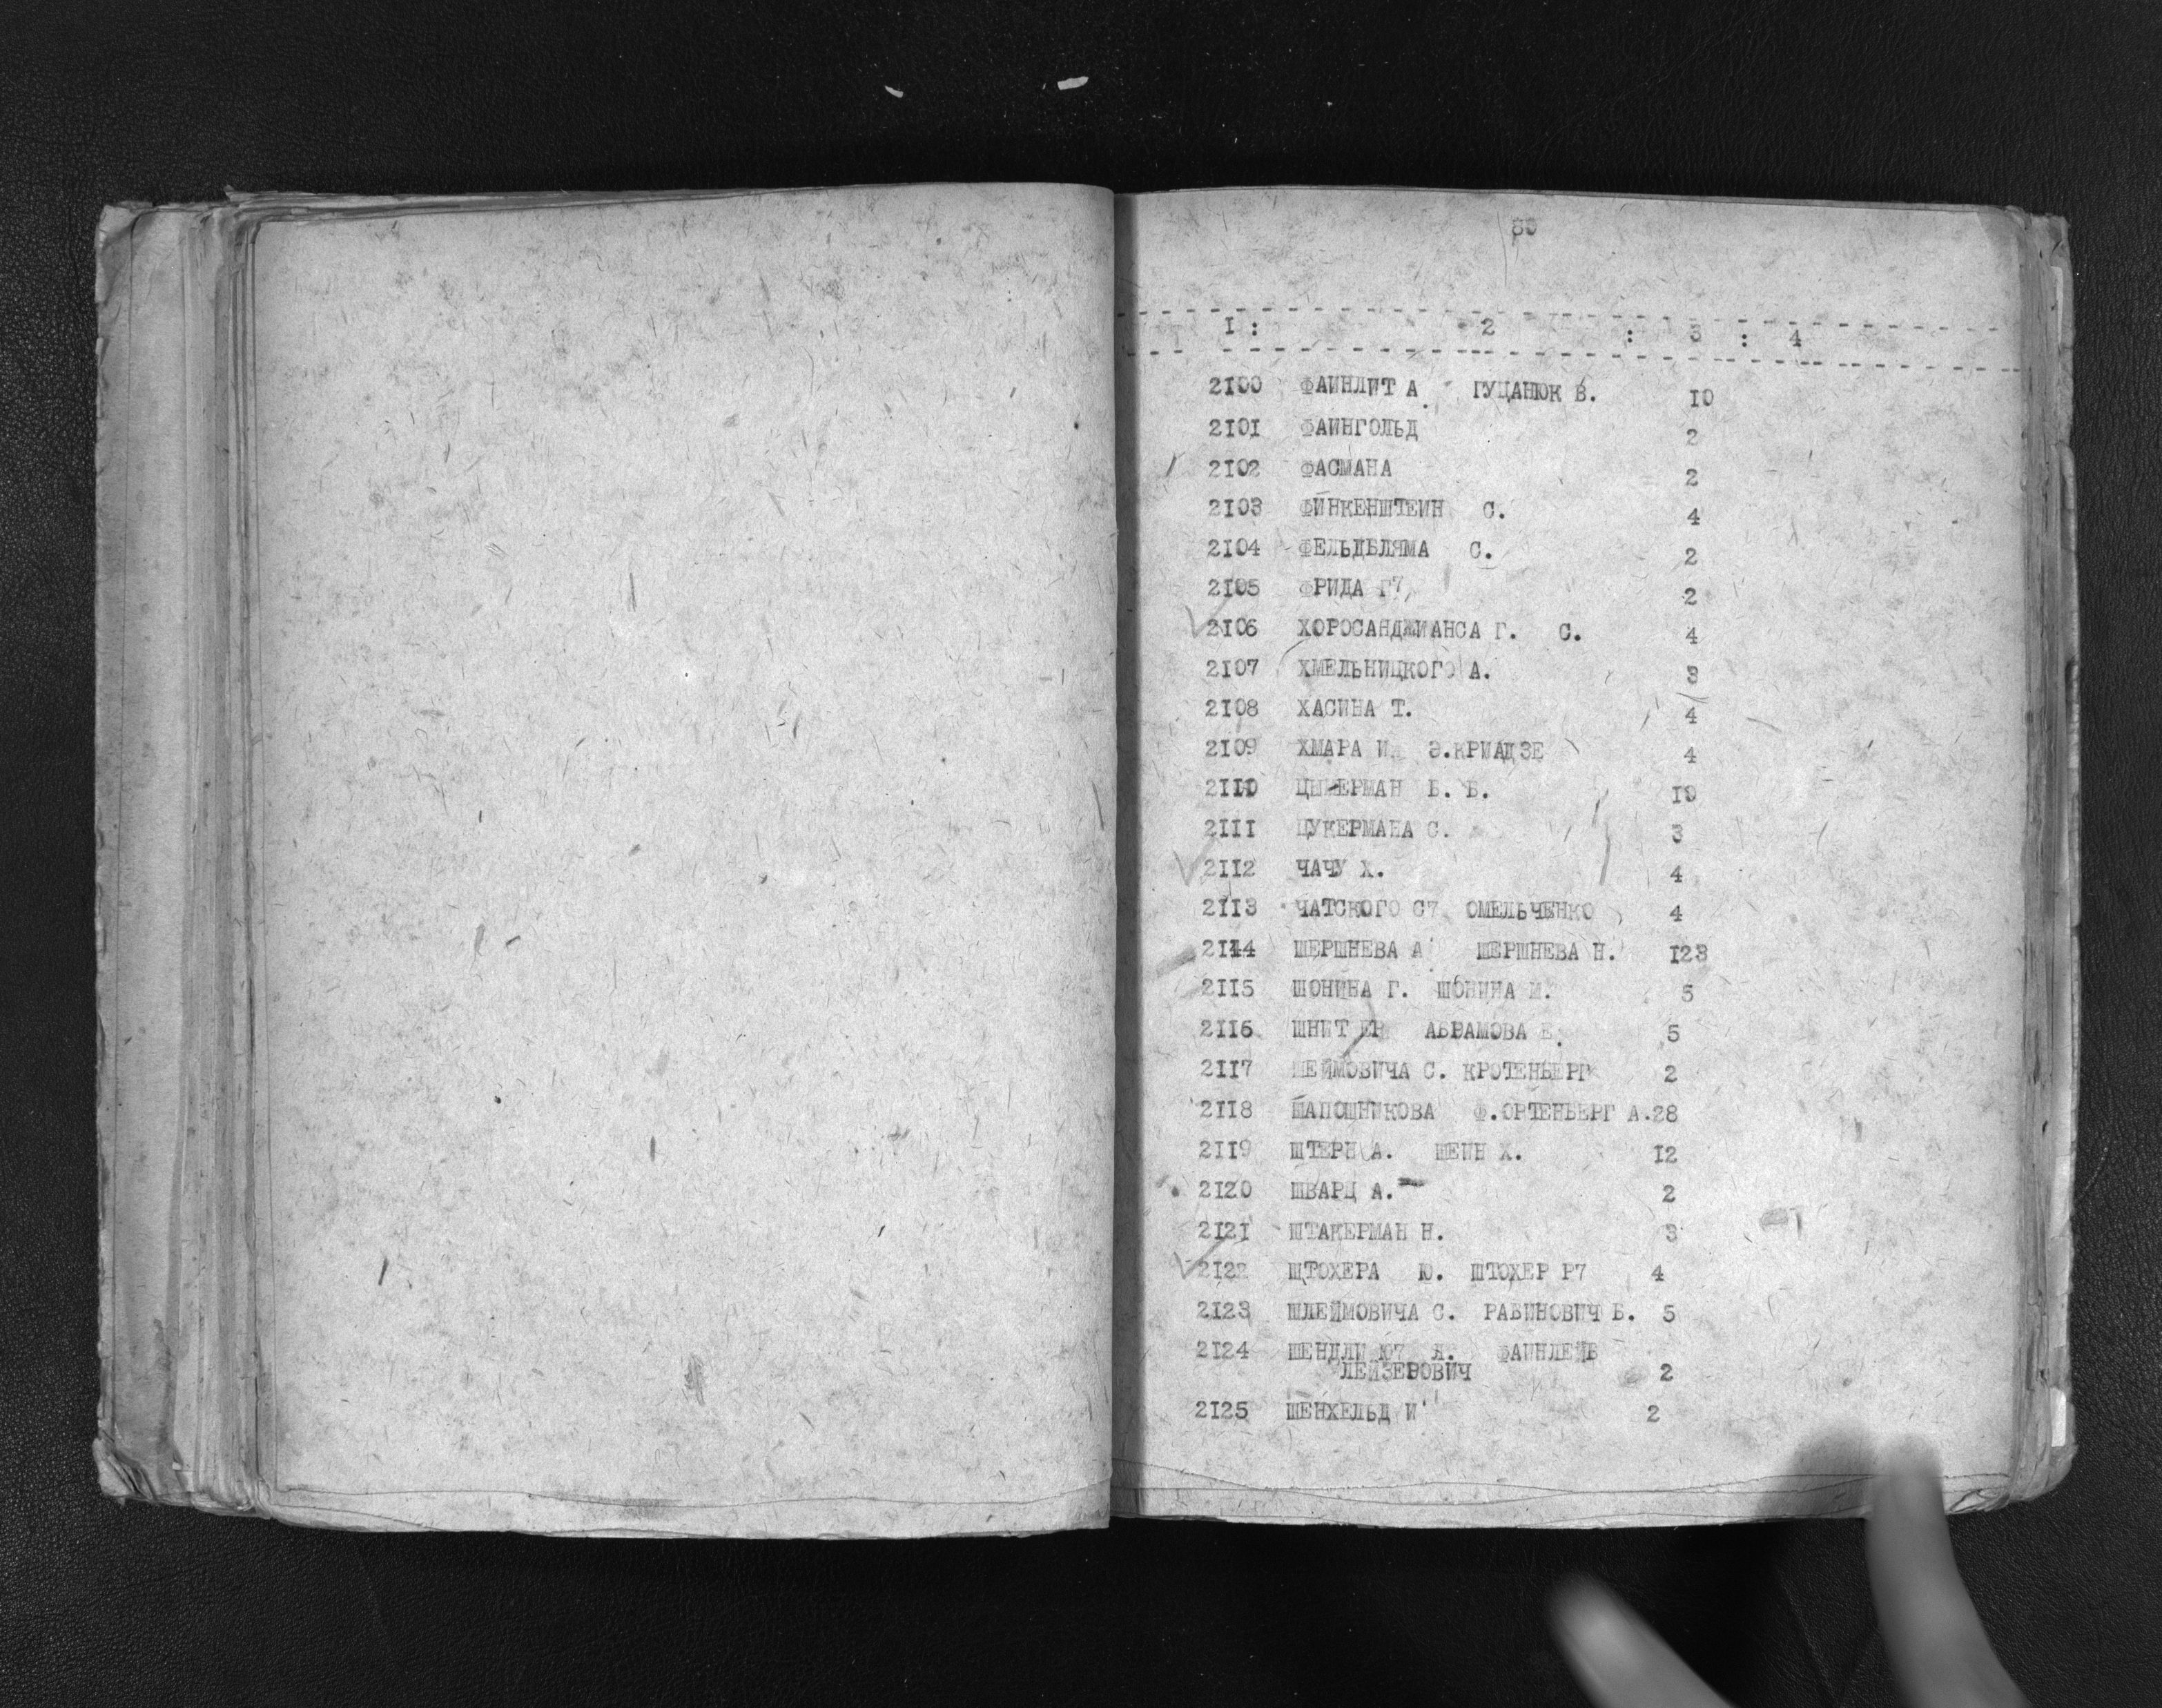 80
I : 2 : 3 : 4
2I00 ФАИНЛИТ А. ГУЦАНЮК В. I0
2I0I ФАИНГОЛЬД 2
2I02 ФАСМАНА 2
2I03 ФИНКЕНШТЕИН С. 4
2I04 ФЕЛЬДБЛЯМА С. 2
2I05 ФРИДА Г7 2
2I06 ХОРОСАНДЖИАНСА Г. С. 4
2I07 ХМЕЛЬНИЦКОГО А. 3
2I08 ХАСИНА Т. 4
2I09 ХМАРА И. Э.КРИАДЗЕ 4
2II0 Б. Б. I0
2III ЦУКЕРМАНА С. 3
2II2 ЧАЧУ Х. 4
2II3 ЧАТСКОГО С7 ОМЕЛЬЧЕНКО 4
2II4 ШЕРШНЕВА А ШЕРШНЕВА Н. I23
2II5 ШОНИНА Г. ШОНИНА 5
2II6 АБРАМОВА 5
2II7 ШЕЙМОВИЧА С. КРОТЕНБЕРГ 2
2II8 ШАПОШНИКОВА Ф.ОРТЕНБЕРГ А.28
2II9 ШТЕРН А. ШЕИН Х. I2
2I20 ШВАРЦ А. 2
2I2I ШТАКЕРМАН Н. 3
2I22 ЩТОХЕРА Ю. ШТОХЕР Р7 4
2I23 ШЛЕЙМОВИЧА С. РАБИНОВИЧ Б. 5
2I24 ШЕНДЛИ Ю7 А. ФАИНЛЕЙБ
ЛЕЙЗЕРОВИЧ 2
2I25 ШЕНХЕЛЬД И' 2